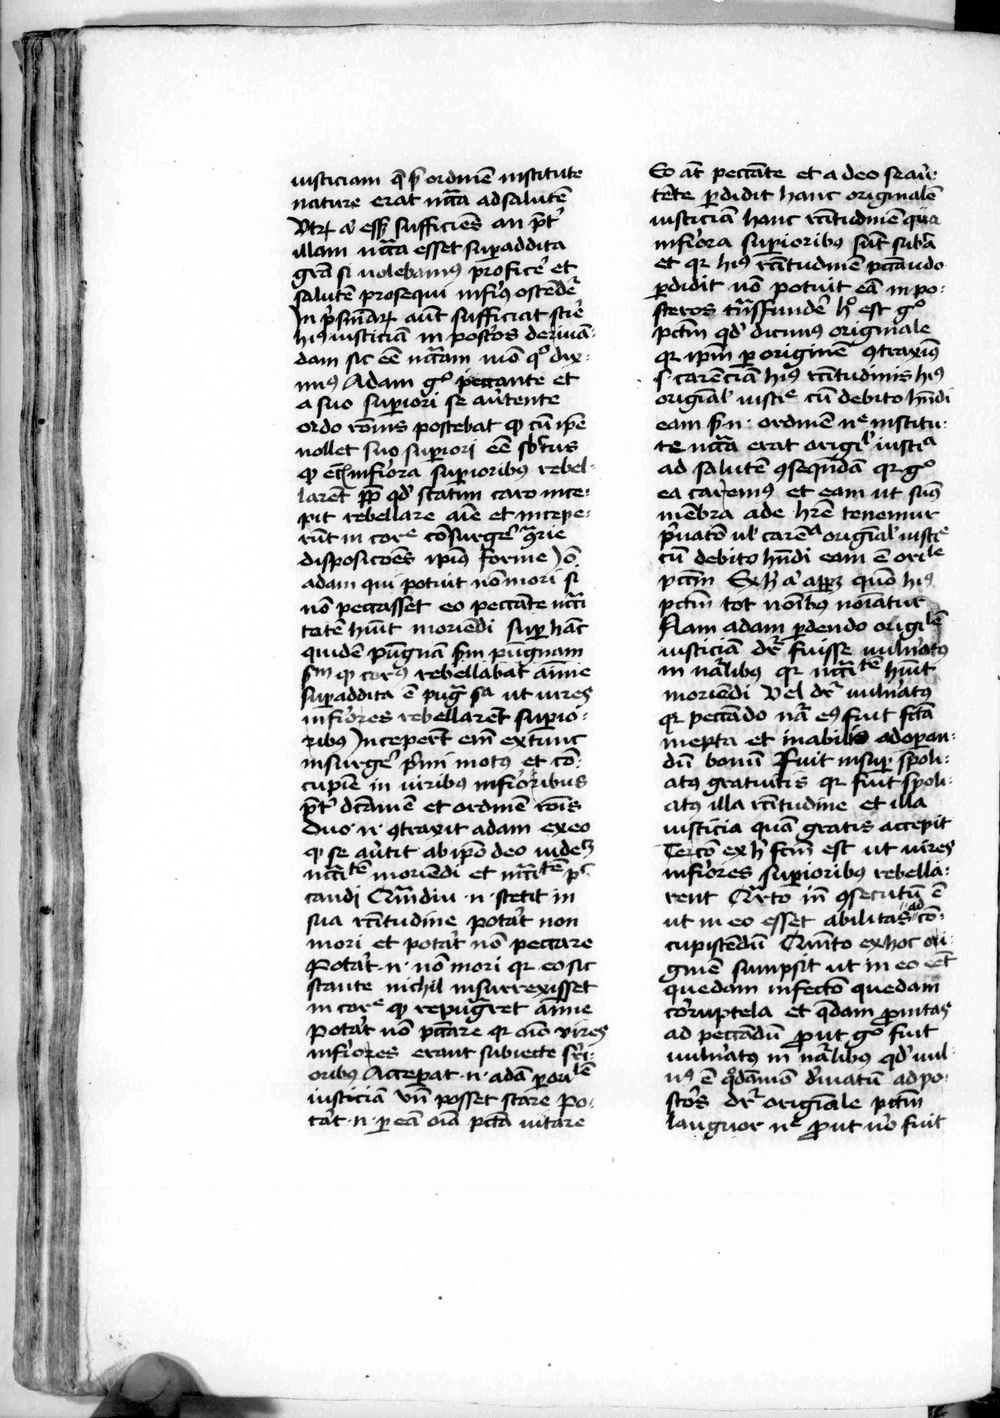 iusticiam q̄ p̄ ordinē institute
nature erat nccā ad salutē
Vtrum aūt esset sufficiēs an p̄t
illam nccā esset superaddita
grā si volebamus proficere et
salutē prosequi inferius ostendetur
In presentiarum aūt sufficiat scire
huiusmodi iusticiā in posteros deriuan-
dam sic eē nccāriam modo quo dixi-
mus Adam gͦ peccante et
a suo superiori se auertente
ordo rōnis poscebat ꝙ cū ipse
nollet suo superiori eē sbiectus
ꝙ et inferiora superioribus rebel-
larēt ppt qd statim caro ince-
pit rebellare aīe et incepe-
rūt in corpe cōsurgere ꝯrarie
disposicōes ipius forme Iō
adam qui potuit nō mori si
nō peccasset eo peccāte ncci-
tatē habuit moriendi super hāc
quidē pugnā scdm pugnam
scdm ꝙ corpus rebellabat anime
superaddita ē pugna scda ut vires
inferiores rebellarēt superio-
ribus Inceperūt enim extunc
insurgere primi motus et cō-
cupiscēcie in viribus inferioribus
pret dictamē et ordinē rōnis
Duo n ꝯtraxit adam ex eo
ꝙ se auertit ab ipō deo videlicet
nccitatē moriēdi et nccitatē pec-
candi Quamdiu n stetit in
sua rectitudine poterat non
mori et poterat nō peccare
Poterat n nō mori qr eo sic
stante nichil insurrexisset
in corpe ꝙ repugnaret anime
Poterat nō peccare qr oēs vires
inferiores erant subiecte superi-
oribus Acceperat n adā per oriḡlē
iusticiā vn̄ posset stare po-
terat n per eā oīa pctā vitare
Eo aūt peccāte et a deo se auer-
tēte perdidit hanc originalē
iusticiā hanc rectitudinē qua
inferiora superioribus sūt subiecta
et qr huius rectitudinē peccando
perdidit nō potuit eā in po-
steros transfundere hͦ est gͦ
pctm qd dicimus originale
qr ipm per originē ꝯtraxim̄us
s carēciā huius rectitudinis huius
originalis iusticie cū debito habendi
eam scdm n ordinē nature institu-
te nccā erat originalis iusticia
ad salutē ꝯsequēdā qr gͦ
ea caremus et eam ut sumus
mēbra ade habere tenemur
priuatō ul carencia originalis iusticie
cū debito habendi eam ē originale
pctm Ex hͦ aūt apparet quō huius
pctm tot nominibus nominatur
Nam adam perdendo originalē
iusticiā dr fuisse vulneratus
in naturalibus qr nccitatē habuit
moriendi Vel dr vulneratus
qr peccādo natura eius fuit facta
inepta et inabilis ad operan-
dū bonū Fuit insuper spoli-
atus gratuitis qr fuit spoli-
atus illa rectitudine et illa
iusticia quā gratis accepit
Tercō ex hͦ fctm est ut vires
inferiores superioribus rebella-
rent Quarto in ꝯsecutū ē
ut in eo esset abilitas ad cō-
cupiscēdū Quinto ex hoc ori-
ginē sumpsit ut in eo eēt
quedam infectō quedam
corruptela et quedam pronitas
ad peccādū Prout gͦ fuit
vulneratus in naturalibus qd vul-
nus ē quodāmodo deriuatū ad po-
steros dr originale pctm
languor nature Prout uero fuit